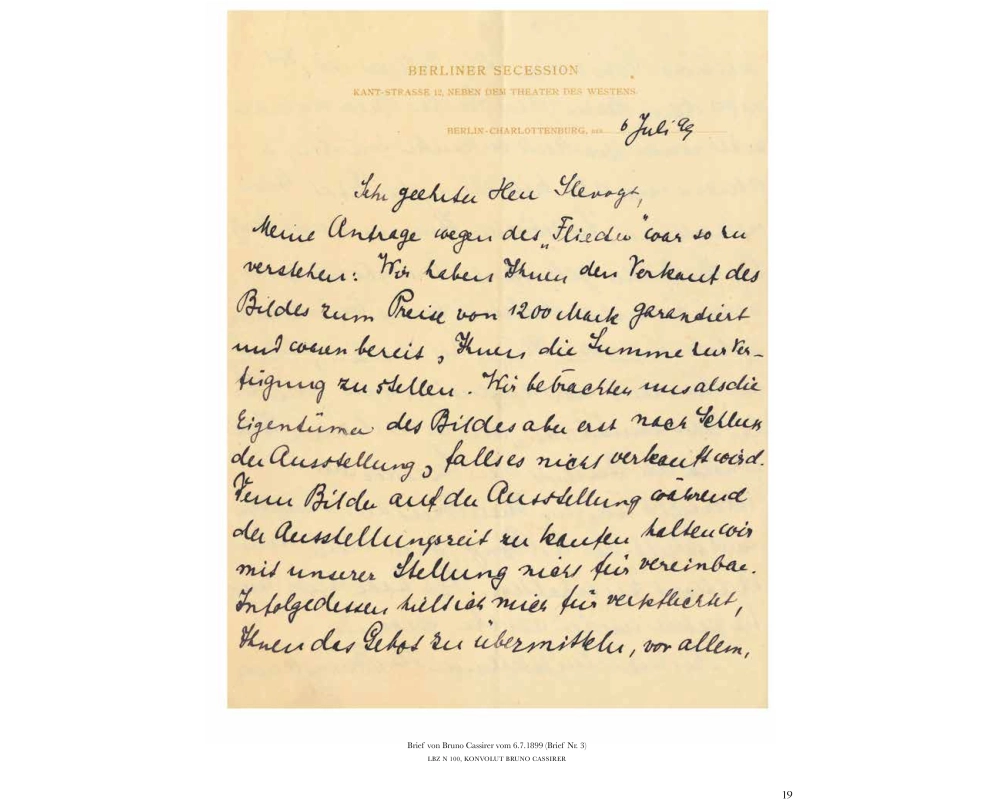 BERLINER SECESSION
KANT-STRASSE 12, NEBEN DEM THEATER DES WESTENS.
BERLIN-CHARLOTTENBURG, DEN 6 Juli 99
Sehr geehrter Herr Slevogt,
Meine Anfrage wegen des „Flieder“ war so zu
verstehen: Wir haben Ihnen den Verkauf des
Bildes zum Preise von 1200 Mark garandiert
und waren bereit, Ihnen die Summe zur Ver-
fügung zu stellen. Wir betrachten uns als die
Eigentümer des Bildes aber erst nach Schluss
der Ausstellung, falls es nicht verkauft wird.
Denn Bilder auf der Ausstellung während
der Ausstellungszeit zu kaufen halten wir
mit unserer Stellung nicht für vereinbar.
Infolgedessen hielt ich mich für verpflichtet,
Ihnen das Gebot zu übermitteln, vor allem,
Brief von Bruno Cassirer vom 6.7.1899 (Brief Nr. 3)
LBZ N 100, KONVOLUT BRUNO CASSIRER
19